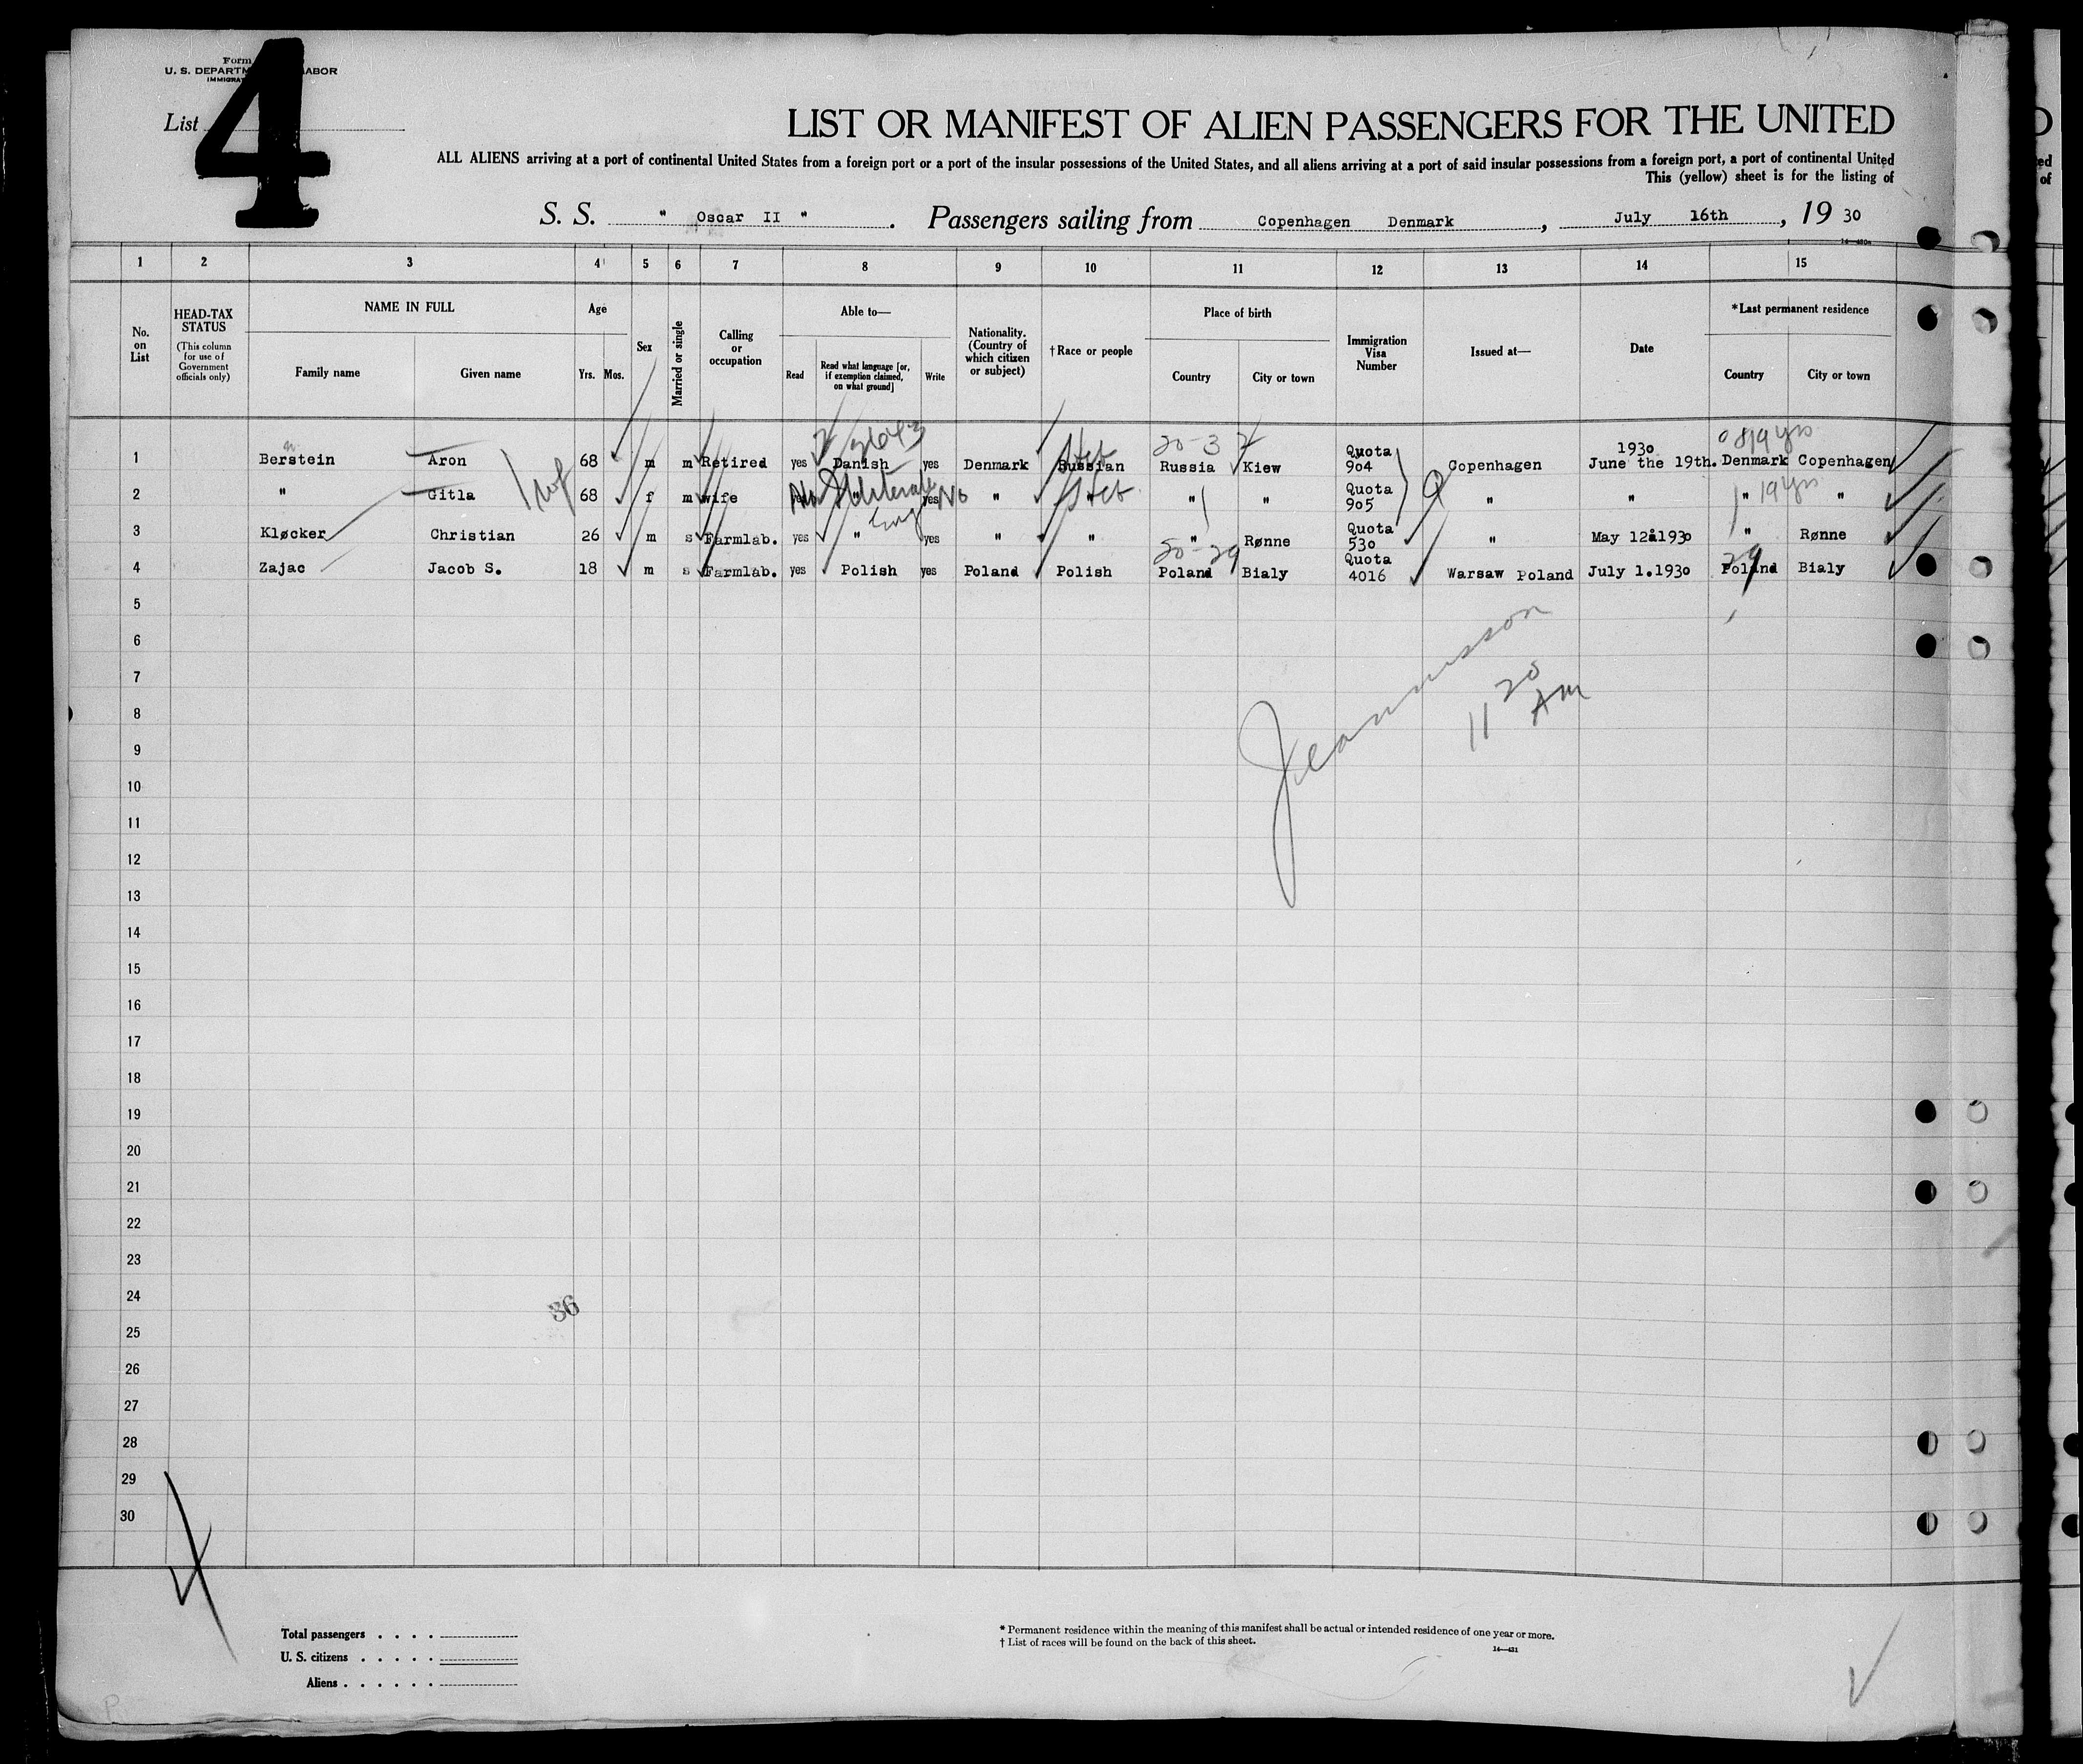 Form
U. S. DEPARTM ABOR
IMMIGRA
List 4
LIST OR MANIFEST OF ALIEN PASSENGERS FOR THE UNITED
ALL ALIENS arriving at a port of continental United States from a foreign port or a port of the insular possessions of the United States, and all aliens arriving at a port of said insular possessions from a foreign port, a port of continental United
This (yellow) sheet is for the listing of
S. S. " Oscar II " . Passengers sailing from Copenhagen Denmark , July 16th , 19 30
1 2 3 4 5 6 7 8 9 10 11 12 13 14 15
No. on List
HEAD-TAX STATUS
(This column for use of Government officials only)
NAME IN FULL
Family name Given name
Age
Yrs. Mos.
Sex
Married or single
Calling or occupation
Able to—
Read
Read what language [or, if exemption claimed, on what ground]
Write
Nationality. (Country of which citizen or subject)
†Race or people
Place of birth
Country City or town
Immigration Visa Number
Issued at—
Date
*Last permanent residence
Country City or town
20-3 19 yrs
1 Berstein Aron 68 m m Retired yes Danish yes Denmark Russian Heb Russia Kiew Quota 904 Copenhagen 1930 June the 19th. Denmark Copenhagen
2 " Gitla 68 f m wife yes No " Illiterate yes No " " Heb " " Quota 905 " " " 19 yrs "
wf
Eng
3 Kløcker Christian 26 m s Farmlab. yes " yes " " " Rønne Quota 530 " May 12å1930 " Rønne
20-29 29
4 Zajac Jacob S. 18 m s Farmlab. yes Polish yes Poland Polish Poland Bialy Quota 4016 Warsaw Poland July 1.1930 Poland Bialy
5
6
7
11 20 AM
8
9
10
11
12
13
14
15
16
17
18
19
20
21
22
23
24
36
25
26
27
28
29
30
Total passengers . . . .
U. S. citizens . . . . .
Aliens . . . . . .
* Permanent residence within the meaning of this manifest shall be actual or intended residence of one year or more.
† List of races will be found on the back of this sheet.
14—431